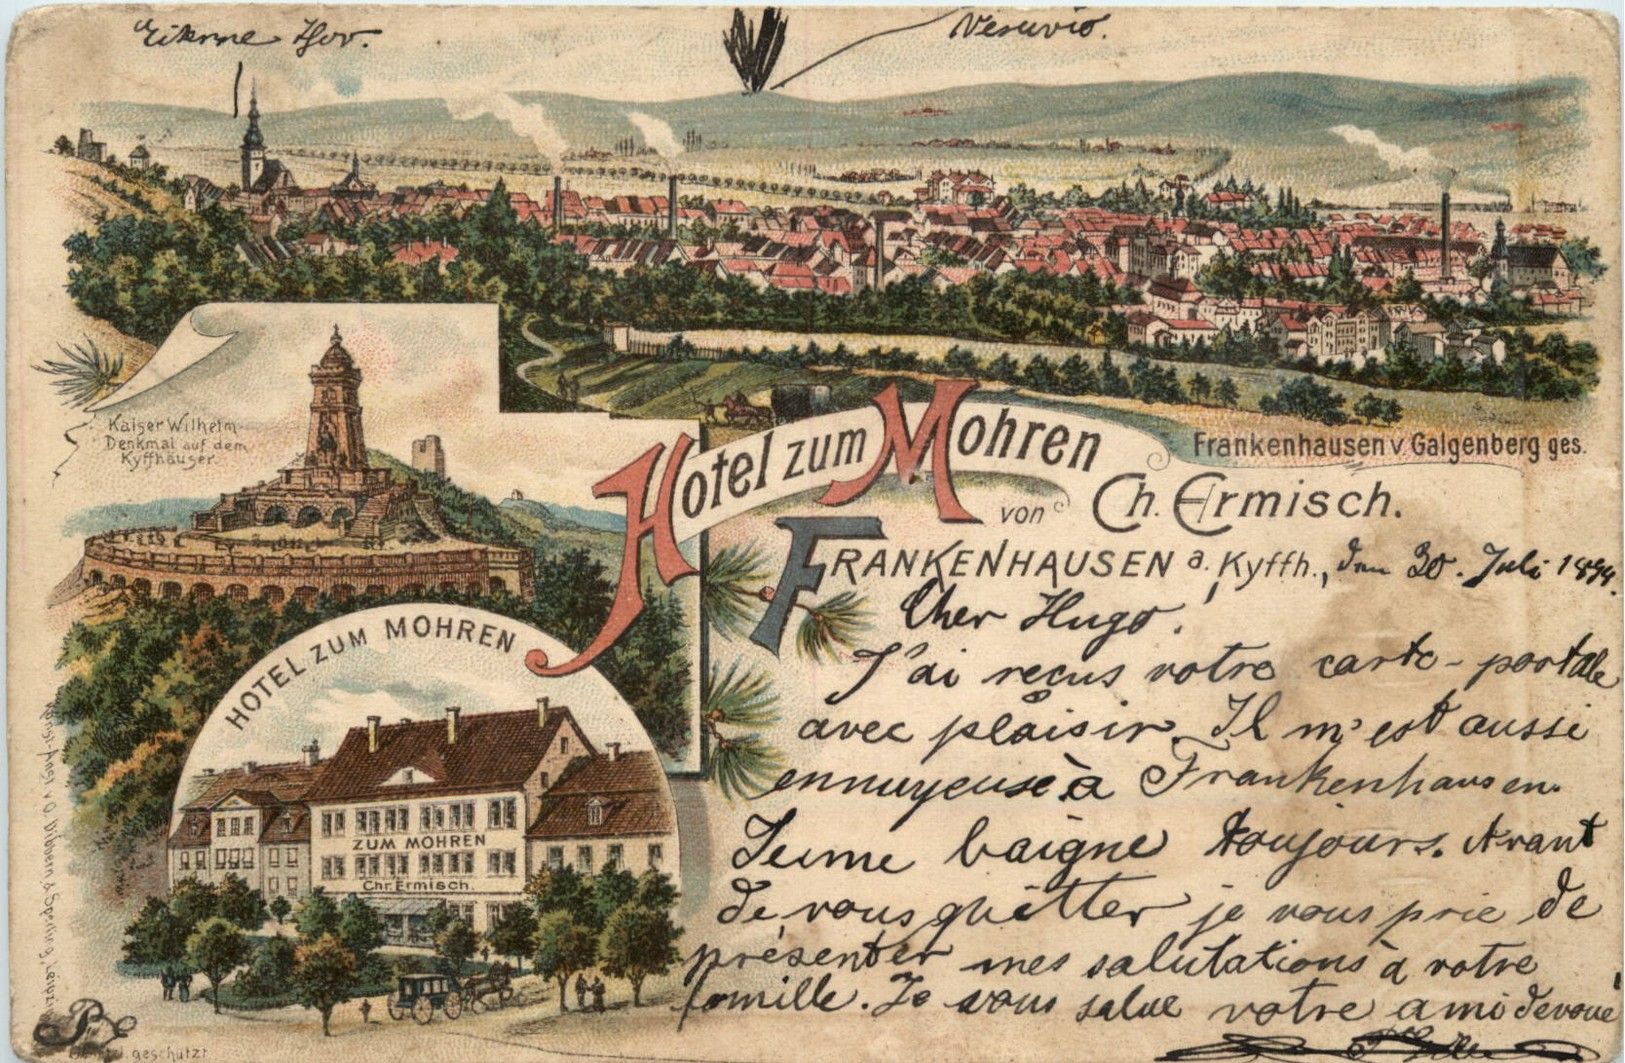 Vesuvio.
Kaiser Wilhelm-
Denkmal auf dem
Kyffhäuser
Hotel zum Mohren
Frankenhausen v. Galgenberg ges.
von Ch. Ermisch.
FRANKENHAUSEN a. Kyffh., den 30. Juli 1899.
HOTEL ZUM MOHREN
ZUM MOHREN
Chr. Ermisch.
Cher Hugo!
J'ai reçus votre carte-postale
avec plaisir. Il m'est aussi
ennuyeuse à Frankenhausen.
Je me baigne toujours. Avant
de vous quitter je vous prie de
présenter mes salutations à votre
famille. Je vous salue votre ami devoué
geschützt